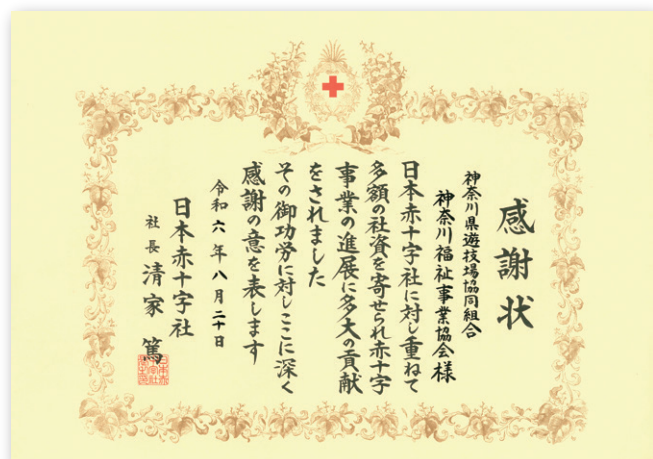 感謝状
神奈川県遊技場協同組合
神奈川福祉事業協会様
日本赤十字社に対し重ねて
多額の社資を寄せられ赤十字
事業の進展に多大の貢献
をされました
その御功労に対しここに深く
感謝の意を表します
令和六年八月二十日
日本赤十字社
社長 清家 篤